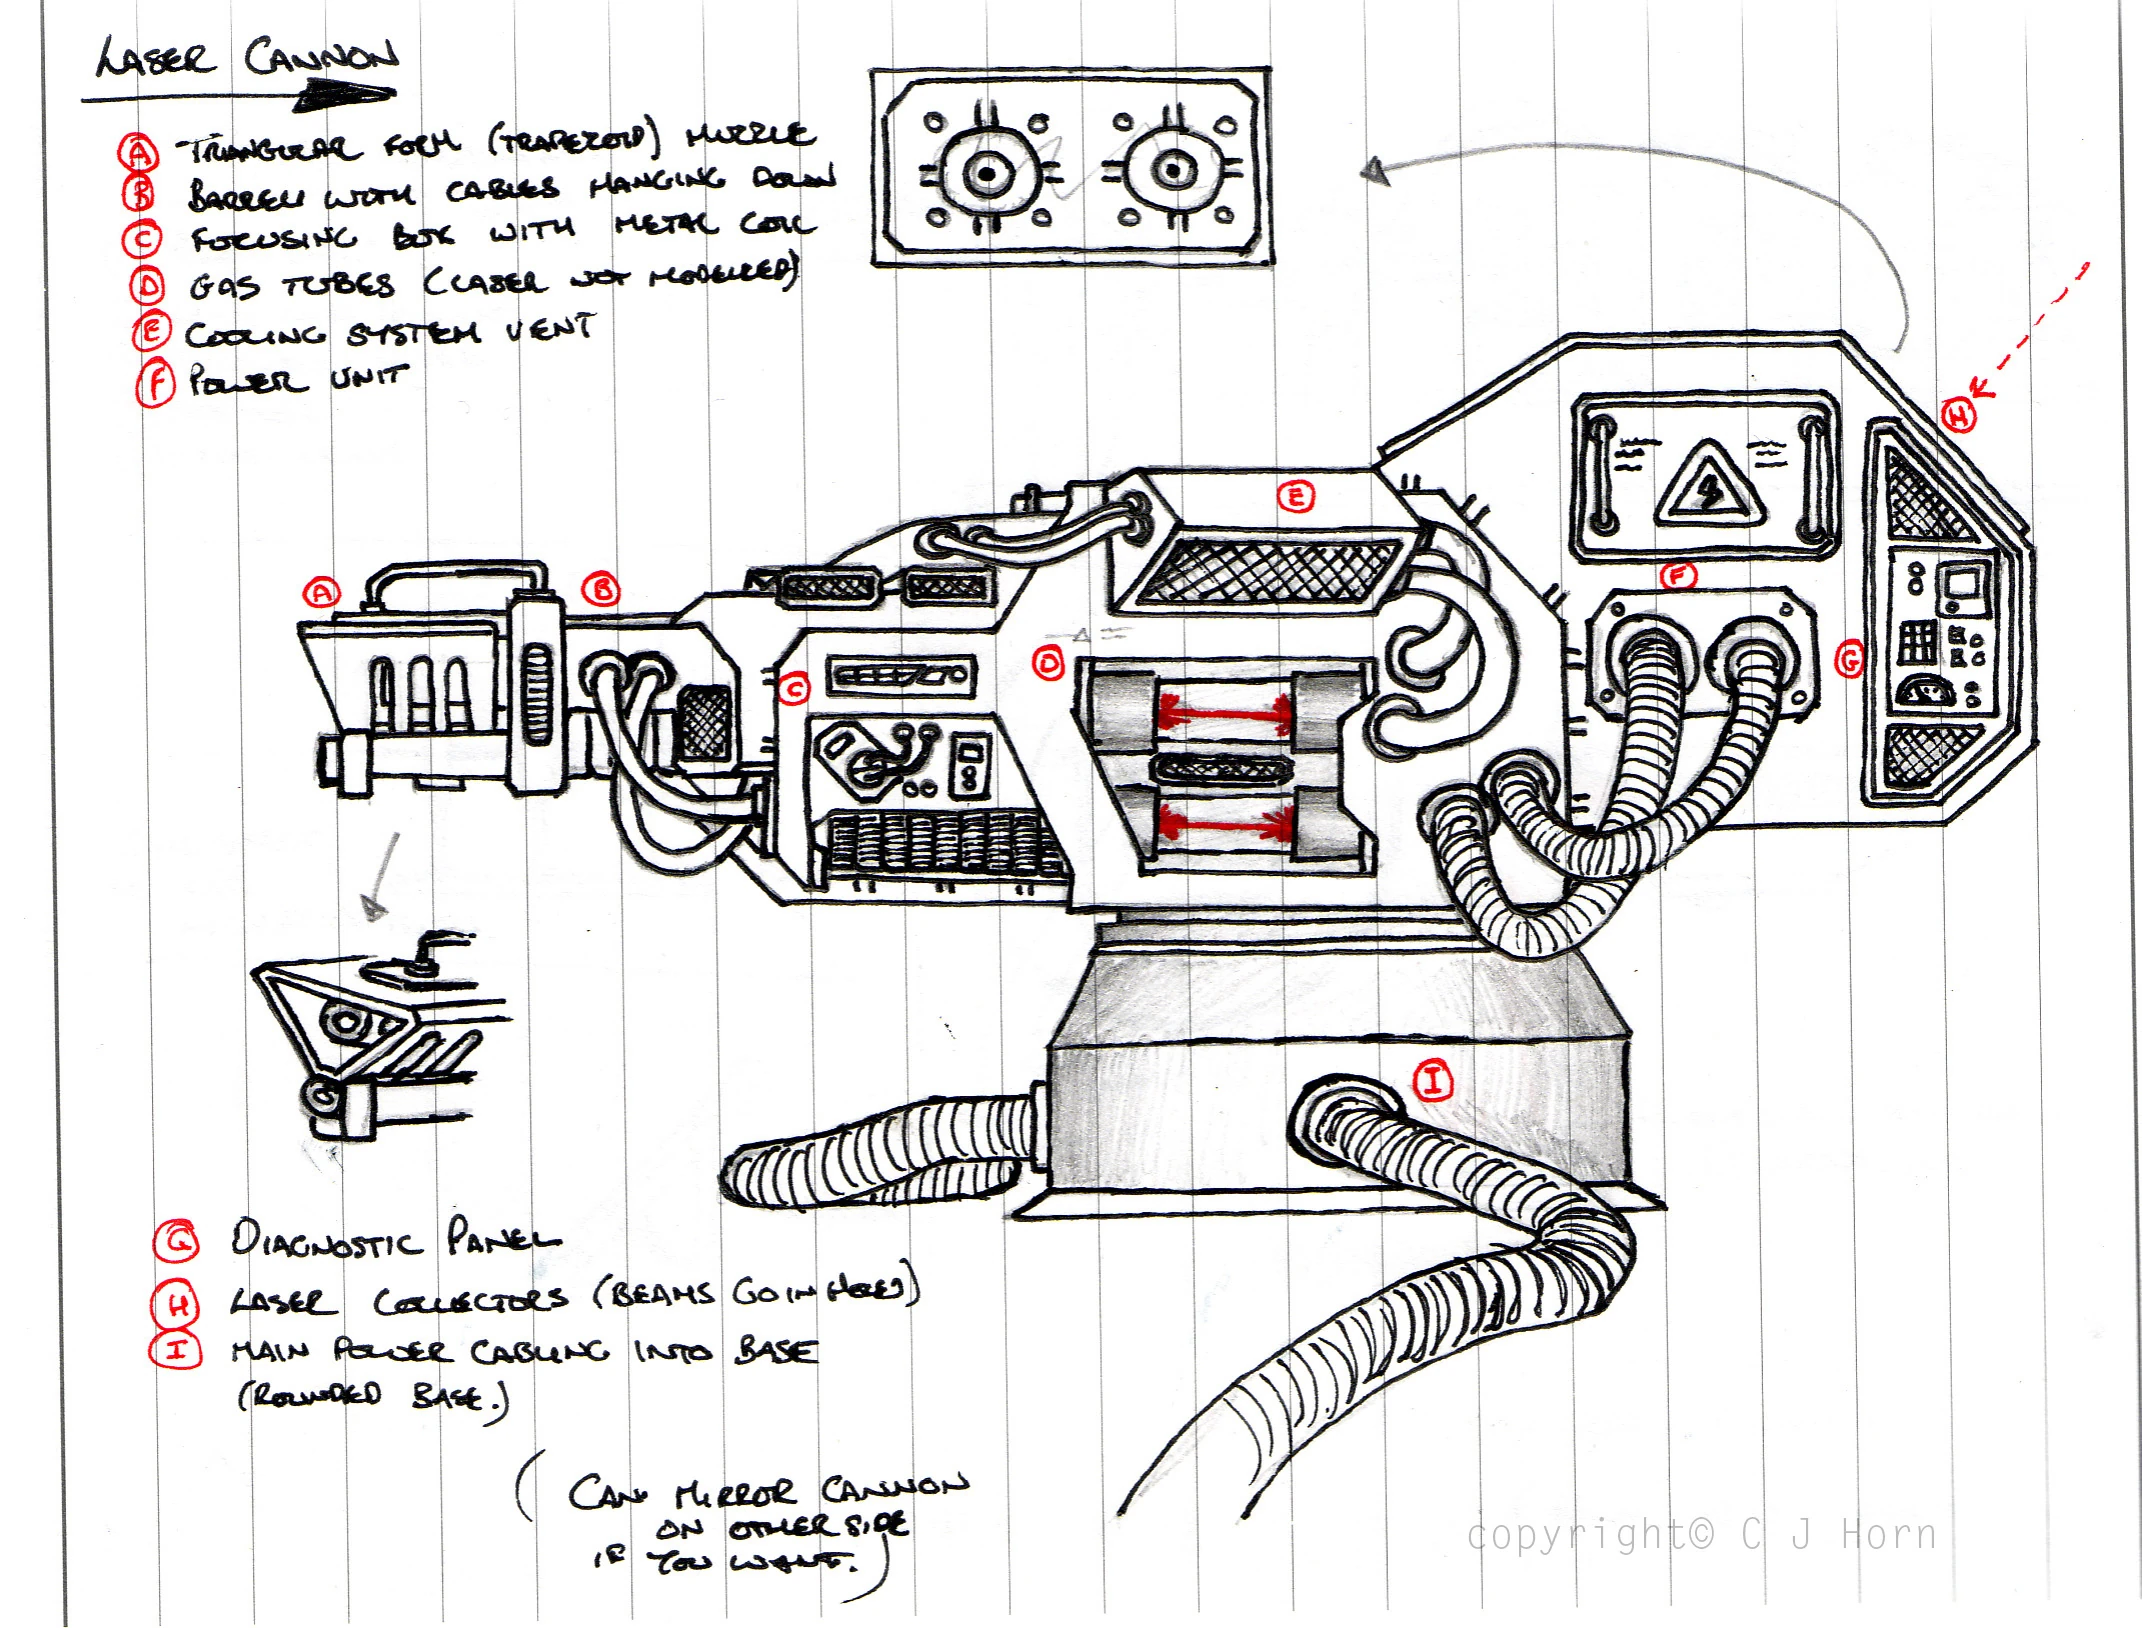 LASER CANNON
A TRIANGULAR FORM (TRAPEZOID) MUZZLE
B BARREL WITH CABLES HANGING DOWN
C FOCUSING BOX WITH METAL COIL
D GAS TUBES (LASER NOT MODELLED)
E COOLING SYSTEM VENT
F POWER UNIT
H
E
A
B
F
D
G
C
I
G DIAGNOSTIC PANEL
H LASER COLLECTORS (BEAMS GO IN HOLES)
I MAIN POWER CABLING INTO BASE
(ROUNDED BASE.)
(CAN MIRROR CANNON
ON OTHER SIDE
IF YOU WANT.)
copyright© C J Horn